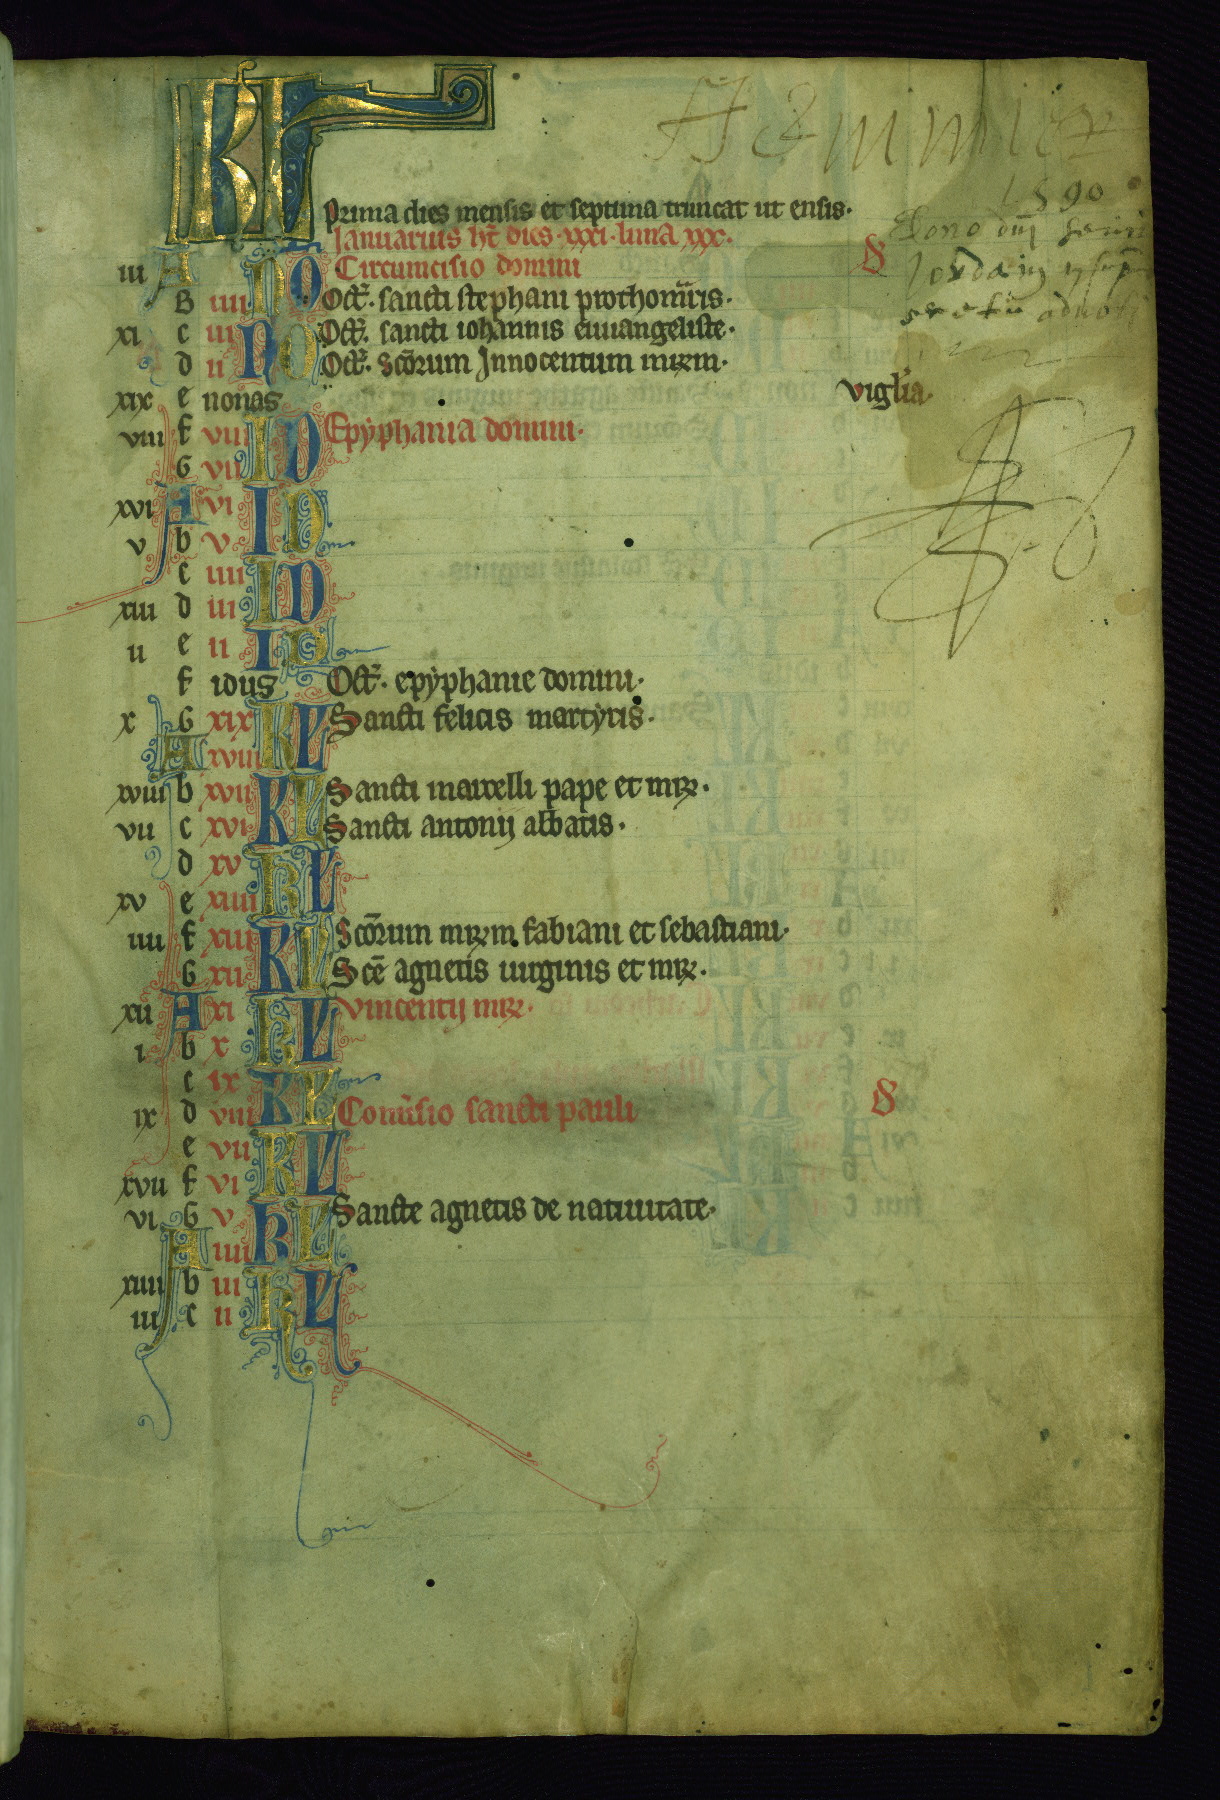 KL
Prima dies mensis et septima truncat ut ensis·
Januarius ht dies·xxxi·luna xxx·
iii A Circumcisio domini S
B iiii NO Oct̄· sancti stephani prothom̄ris·
xi c iii Oct̄· sancti iohannis euuangeliste·
d ii NO Oct̄· Scōrum Innocentum mr̄m·
xix e nonas vigl'ia·
viii f viii ID Epyphania domini·
G vii
xvi A vi ID
v b v
c iiii ID
xiii d iii
ii e ii ID
f idus Oct̄· epyphanie domini·
x G xix KL Sancti felicis martyris·
A xviii
xviii b xvii KL Sancti marcelli pape et mr̄·
vii c xvi Sancti antonij abbatis·
d xv KL
xv e xiiii
iiii f xiii KL Scōrum mr̄m fabiani et sebastiani·
G xii Scē agnetis uirginis et mr̄·
xii A xi KL Vincentij mr̄·
i b x
c ix KL
ix d viii Conūsio sancti pauli S
e vii KL
xvii f vi
vi G v KL Sancte agnetis de natiuitate·
A iiii
xiiii b iii KL
iii c ii
1590
Dono